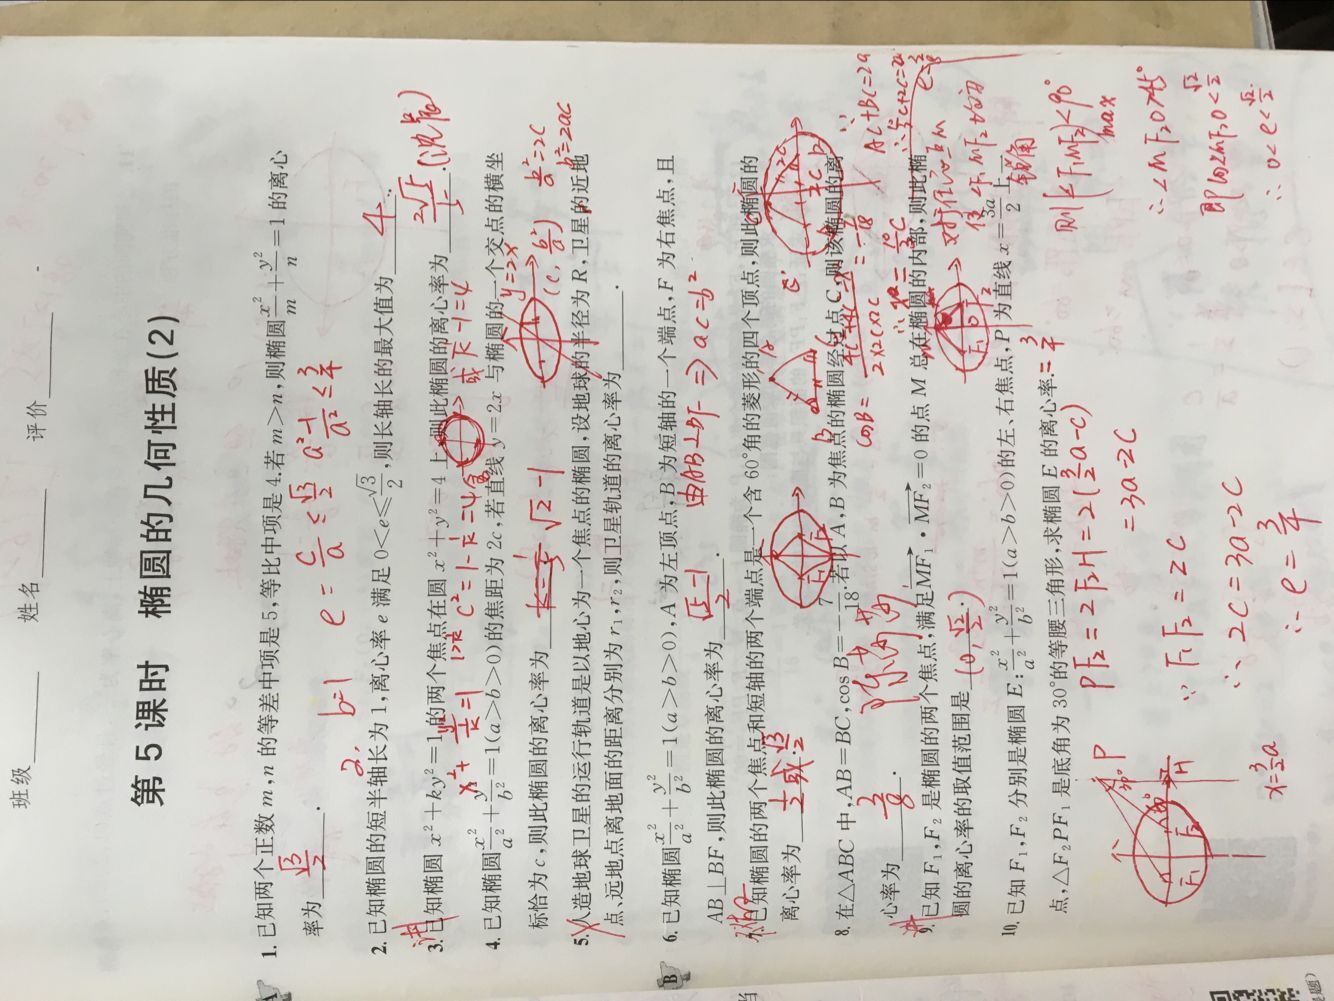 班级 姓名 评价
第5课时 椭圆的几何性质(2)
A
1. 已知两个正数 m,n 的等差中项是 5,等比中项是 4.若 m>n,则椭圆 x²/m + y²/n = 1 的离心
率为 √3/2 .
b=1 e = c/a ≤ √3/2 a²-1/a² ≤ 3/4
2. 已知椭圆的短半轴长为 1,离心率 e 满足 0<e≤√3/2,则长轴长的最大值为 4 .
3. 已知椭圆 x²+ky²=1 的两个焦点在圆 x²+y²=4 上,则此椭圆的离心率为 2√5/5 .
4. 已知椭圆 x²/a² + y²/b² = 1(a>b>0)的焦距为 2c,若直线 y=2x 与椭圆的一个交点的横坐
标恰为 c,则此椭圆的离心率为 √2-1 .
y=2x (c, b²/a) b²=2ac
5. 人造地球卫星的运行轨道是以地心为一个焦点的椭圆,设地球的半径为 R,卫星的近地
点、远地点离地面的距离分别为 r₁,r₂,则卫星轨道的离心率为 .
B
6. 已知椭圆 x²/a² + y²/b² = 1(a>b>0),A 为左顶点,B 为短轴的一个端点,F 为右焦点,且
AB⊥BF,则此椭圆的离心率为 √5-1/2 .
由AB⊥BF ⇒ ac=b²
7. 已知椭圆的两个焦点和短轴的两个端点是一个含 60°角的菱形的四个顶点,则此椭圆的
离心率为 1/2 或 √3/2 .
8. 在△ABC 中,AB=BC,cos B=-7/18.若以 A,B 为焦点的椭圆经过点 C,则该椭圆的离
心率为 3/8 .
AC+BC=2a
9. 已知 F₁,F₂ 是椭圆的两个焦点,满足MF₁·MF₂=0 的点 M 总在椭圆的内部,则此椭
圆的离心率的取值范围是 (0, √2/2) .
则(∠F₁MF₂)max<90°
∴∠MF₂O>45°
∴0<e<√2/2
10. 已知 F₁,F₂ 分别是椭圆 E: x²/a² + y²/b² = 1(a>b>0)的左、右焦点,P 为直线 x=3a/2 上一
点,△F₂PF₁ 是底角为 30°的等腰三角形,求椭圆 E 的离心率. = 3/4
PF₂ = 2F₂H = 2(3/2a-c)
= 3a-2c
∵ F₁F₂ = 2c
∴ 2c = 3a-2c
∴ e = 3/4
P
30°
60°
F₁ F₂ H
x=3/2a